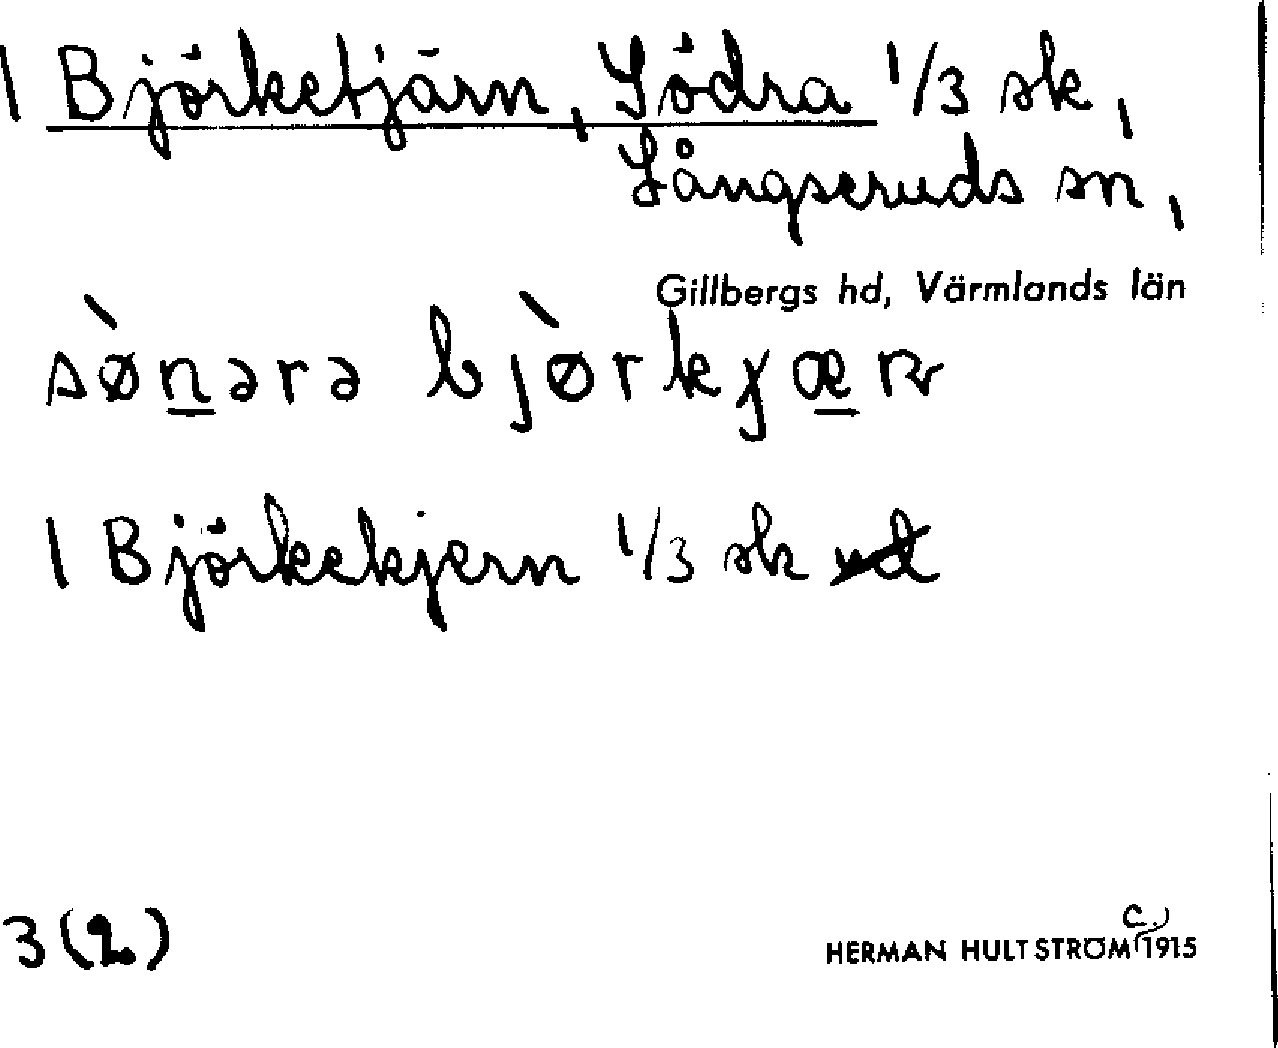 1 Björketjärn, Södra 1/3 sk,
Långseruds sn,
Gillbergs hd, Värmlands län
sø̀n̲ərə bjø̀rkjæ̲ɳ
1 Björkekjern 1/3 sk
3 (2)
HERMAN HULTSTRÖM (c.) 1915